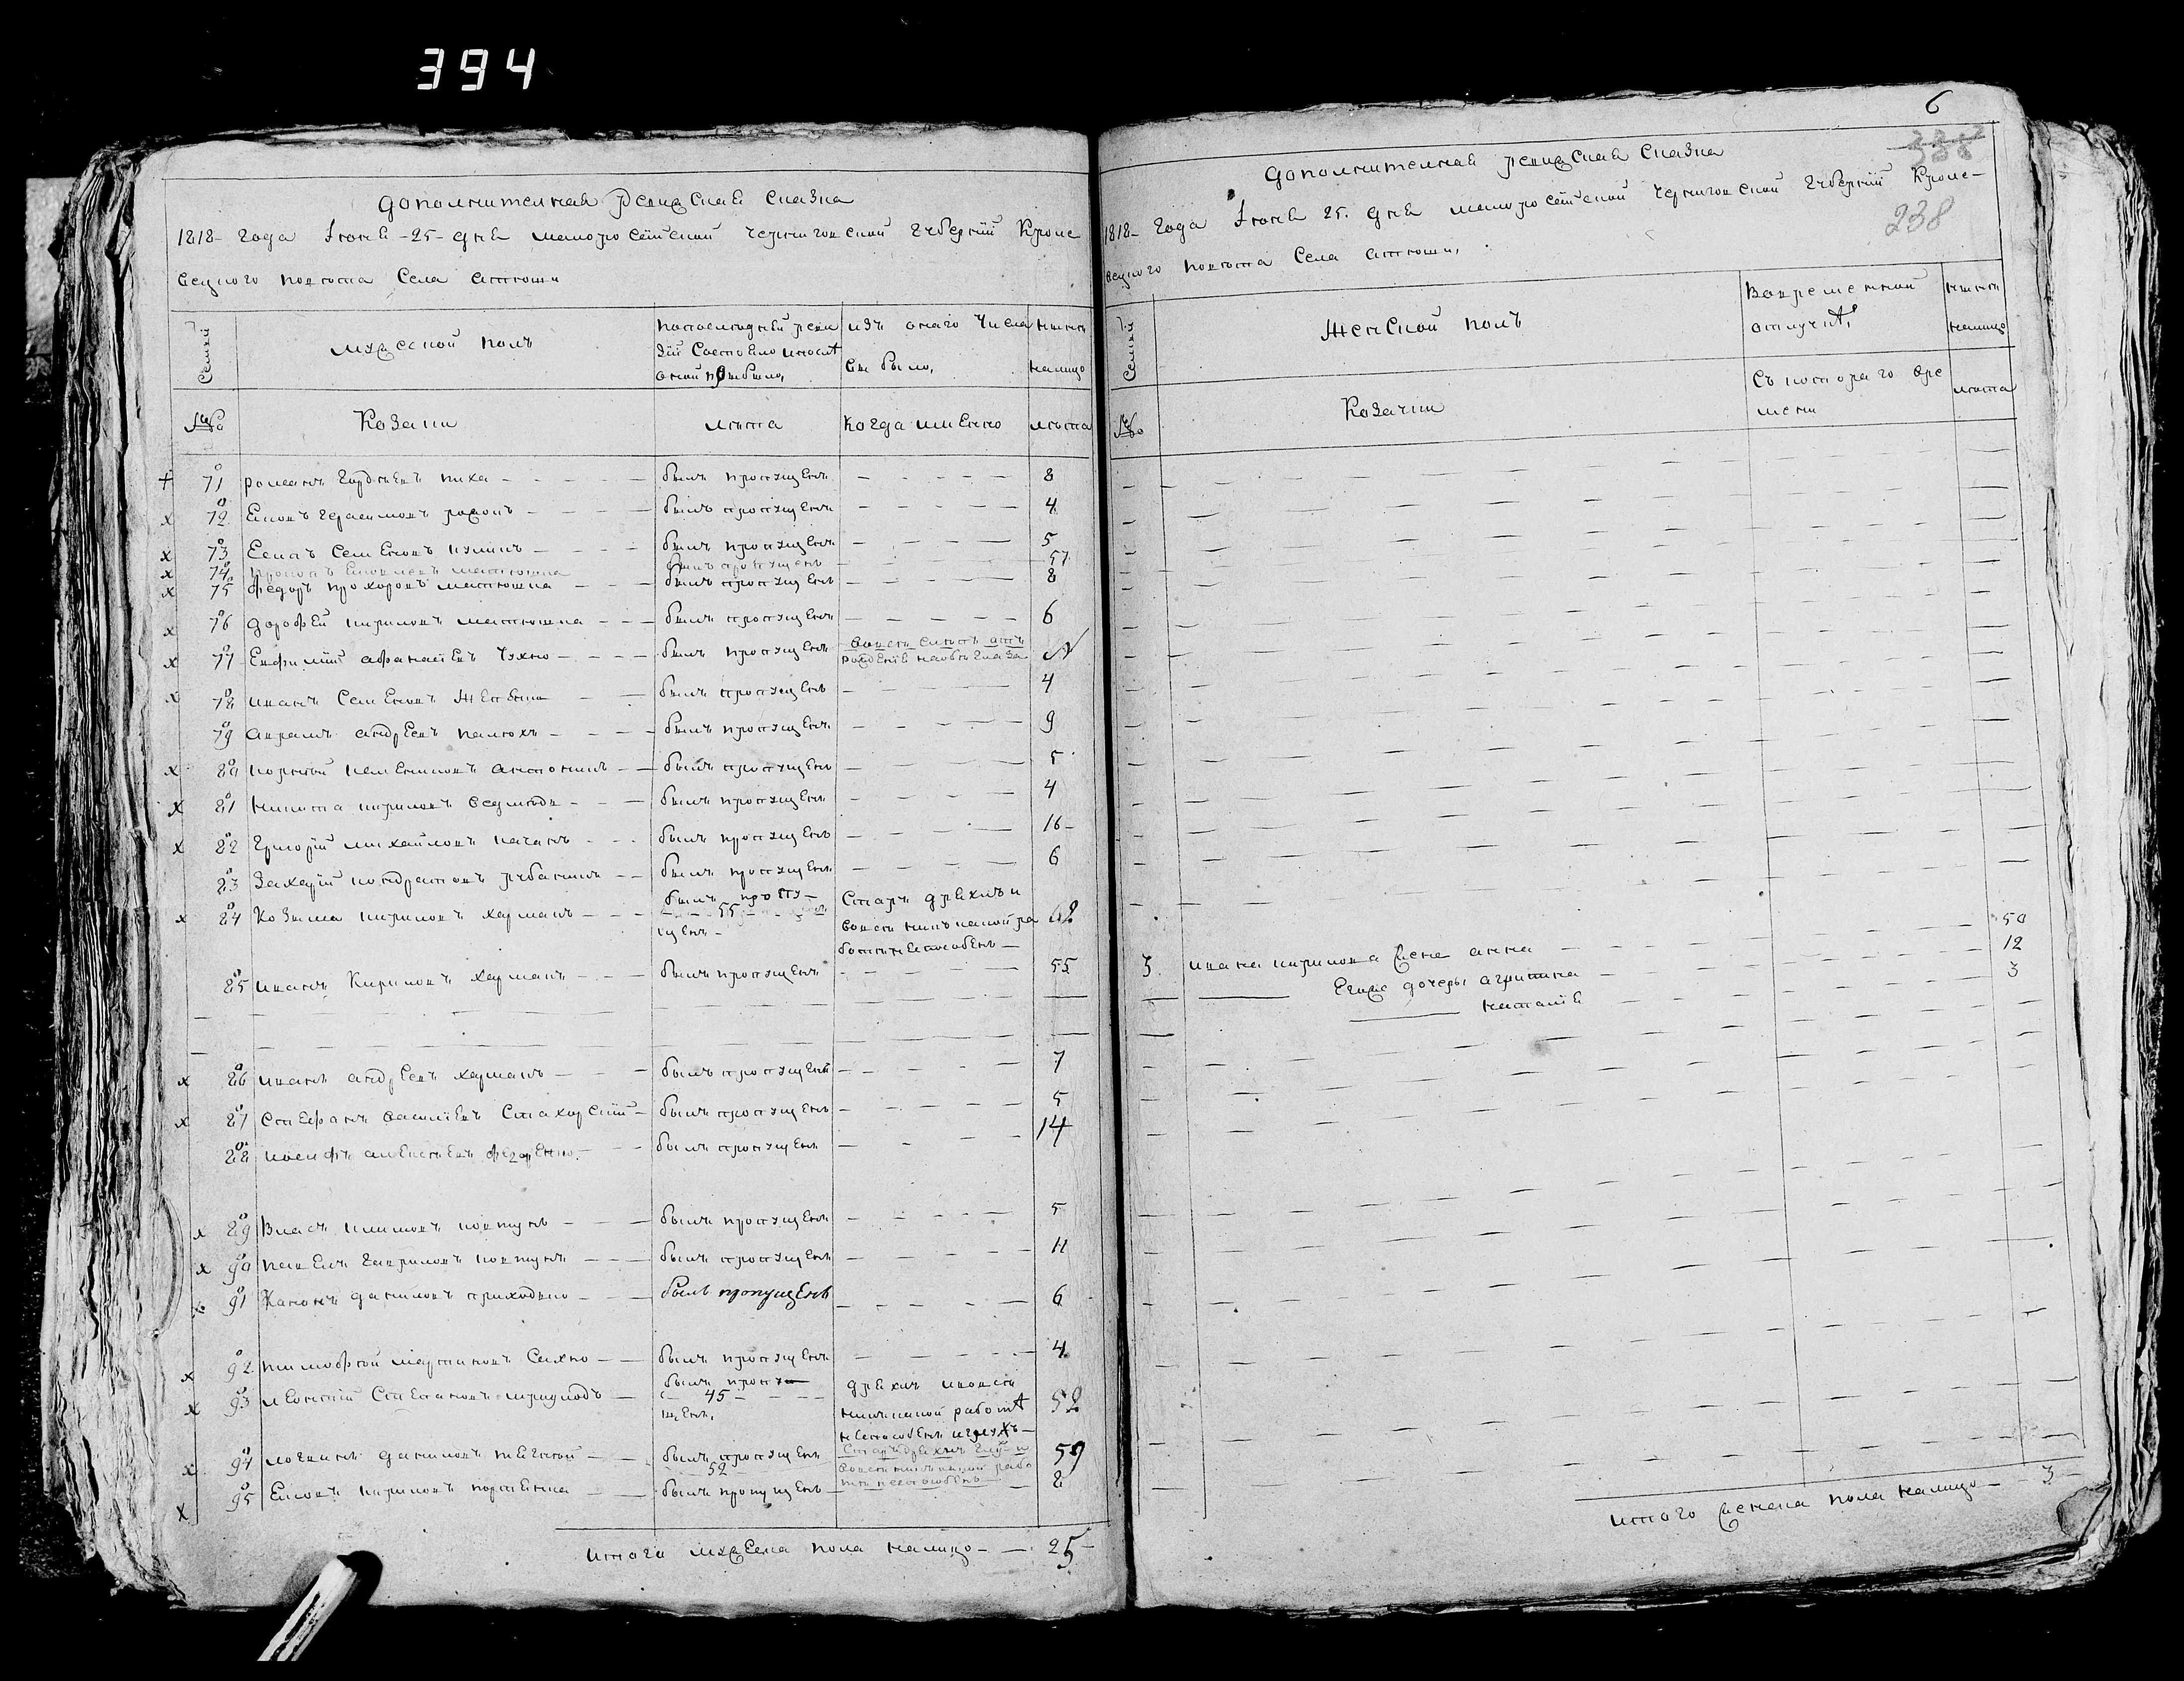 394
Дополнителная ревизская сказка
1818 года Июня 25 дня малороссийской черниговской губернии Кроле
вецкого повета Села атюши
Семьи
мужеской полъ
по последней реви
зии Состояло и после
оной прибыло
изъ оного Числа
выбыло
ныне
налицо
№
Козаки
лета
когда именно
лета
71 романъ гордиевъ пиха былъ пропущенъ 8
72 герасимовъ былъ пропущенъ 4
73 Семеновъ былъ пропущенъ 5
74 матюшка былъ пропущенъ 57
75 федоръ прохоровъ матюшка былъ пропущенъ 8
76 дорофей кириловъ матюшка былъ пропущенъ 6
77 Евфимий афанасиевъ Чухно былъ пропущенъ вовсе слепъ отъ
рождения на обе глаза
78 иванъ Семеновъ былъ пропущенъ 4
79 аврамъ андреевъ палюхъ былъ пропущенъ 9
80 корней былъ пропущенъ 5
81 никита кириловъ ведмедь былъ пропущенъ 4
82 григорий михайловъ качанъ былъ пропущенъ 16
83 Захарий кондратовъ рубаникъ былъ пропущенъ 6
84 Козьма кириловъ харманъ былъ пропу
55
щенъ
Старъ дряхлъ и
вовсе ни къ какой ра
боте неспособенъ
62
85 иванъ Кириловъ харманъ былъ пропущенъ 55
86 иванъ андреевъ харманъ былъ пропущенъ 7
87 Стефанъ василиевъ Стахорский былъ пропущенъ 5
88 иосифъ алексеевъ федоренко былъ пропущенъ 14
89 Власъ климовъ ковтунъ былъ пропущенъ 5
90 павелъ гавриловъ ковтунъ былъ пропущенъ 11
91 Кононъ даниловъ приходько былъ пропущенъ 6
92 тимофей мартиновъ Сахно былъ пропущенъ 4
93 леонтий Степановъ былъ пропу
45
щенъ
дряхлъ и вовсе
ни къ какой работе
неспособенъ и глухъ
52
94 даниловъ былъ пропущенъ
52
Старъ дряхлъ и
вовсе ни къ какой рабо
те неспособенъ
59
95 кириловъ былъ пропущенъ 8
итого мужеска пола налицо 25
6
238
Дополнителная ревизская Сказка
1818 года Июня 25 дня малороссийской черниговской губернии Кроле
вецкого повета Села атюши
Семьи
Женской полъ
Во временной
отлучке
ныне
налицо
№
Козачки
Съ которого вре
мени
лета
ивана кирилова жена анна 50
Егоже дочеры агрипина 12
наталия 3
итого женска пола налицо 3